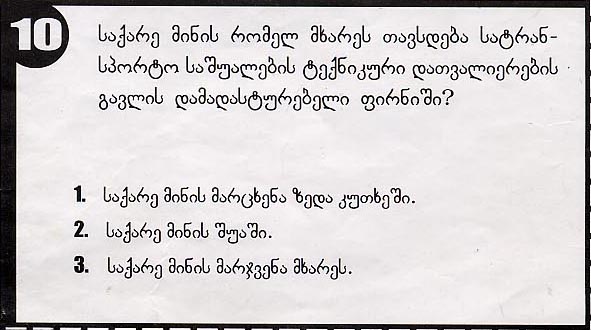 10
საქარე მინის რომელ მხარეს თავსდება სატრან-
სპორტო საშუალების ტექნიკური დათვალიერების
გავლის დამადასტურებელი ფირნიში?
1. საქარე მინის მარცხენა ზედა კუთხეში.
2. საქარე მინის შუაში.
3. საქარე მინის მარჯვენა მხარეს.